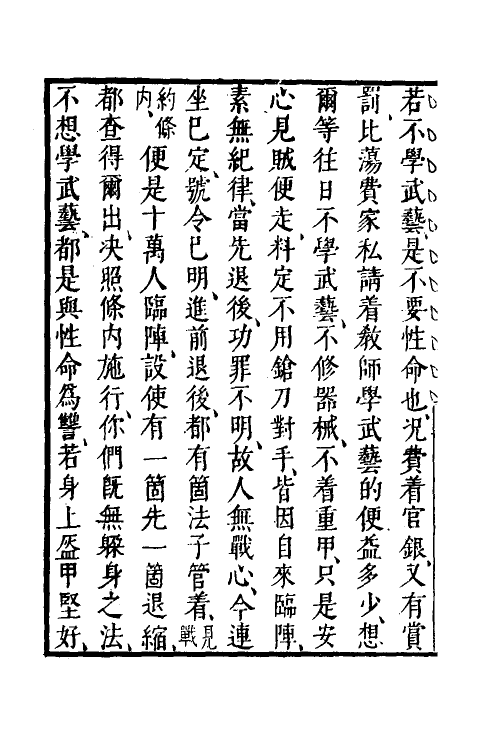 若不學武藝、是不要性命也、況費着官銀、又有賞
罰、比蕩費家私請着教師學武藝的便益多少、想
爾等往日不學武藝、不修器械、不着重甲、只是安
心見賊便走、料定不用鎗刀對手、皆因自來臨陣、
素無紀律、當先退後、功罪不明、故人無戰心、今連
坐已定、號令已明、進前退後、都有箇法子管着、見戰
約條內、便是十萬人臨陣、設使有一箇先一箇退縮、
都查得爾出、决照條內施行、你們旣無躱身之法、
不想學武藝、都是與性命爲讐、若身上盔甲堅好、